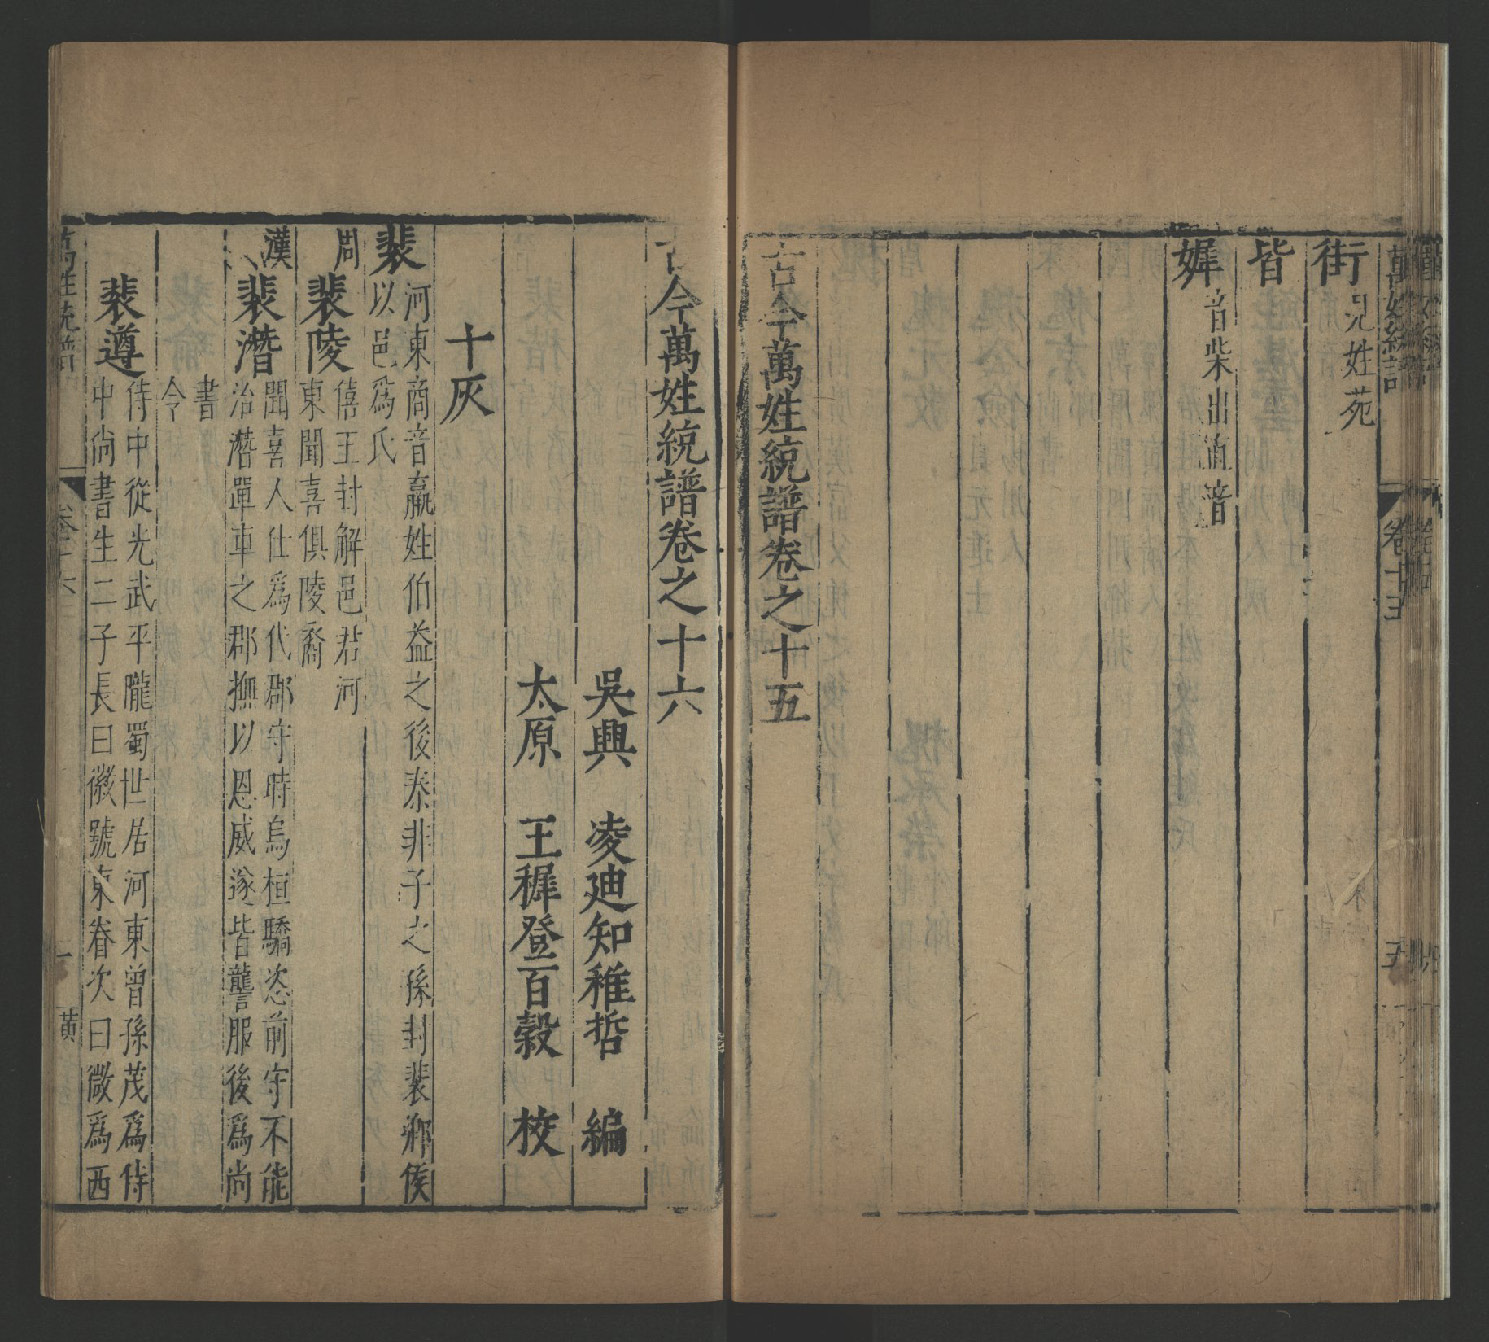 萬姓統譜 卷十五 五
街 見姓苑
皆
㜑 音柴出直音
古今萬姓統譜卷之十五
古今萬姓統譜卷之十六
吳興 凌迪知稚哲 編
太原 王穉登百穀 校
十灰
裴 河東商音嬴姓伯益之後秦非子之孫封裴鄉侯
以邑爲氏
周 裴陵 僖王封解邑君河
東聞喜俱陵裔
漢 裴潛 聞喜人仕爲代郡守時烏桓驕恣前守不能
治潛單車之郡撫以恩威遂皆讋服後爲尚
書
令
裴遵 侍中從光武平隴蜀世居河東曾孫茂爲侍
中尚書生二子長曰徽號東眷次曰微爲西
萬姓統譜 卷十六 一 黃